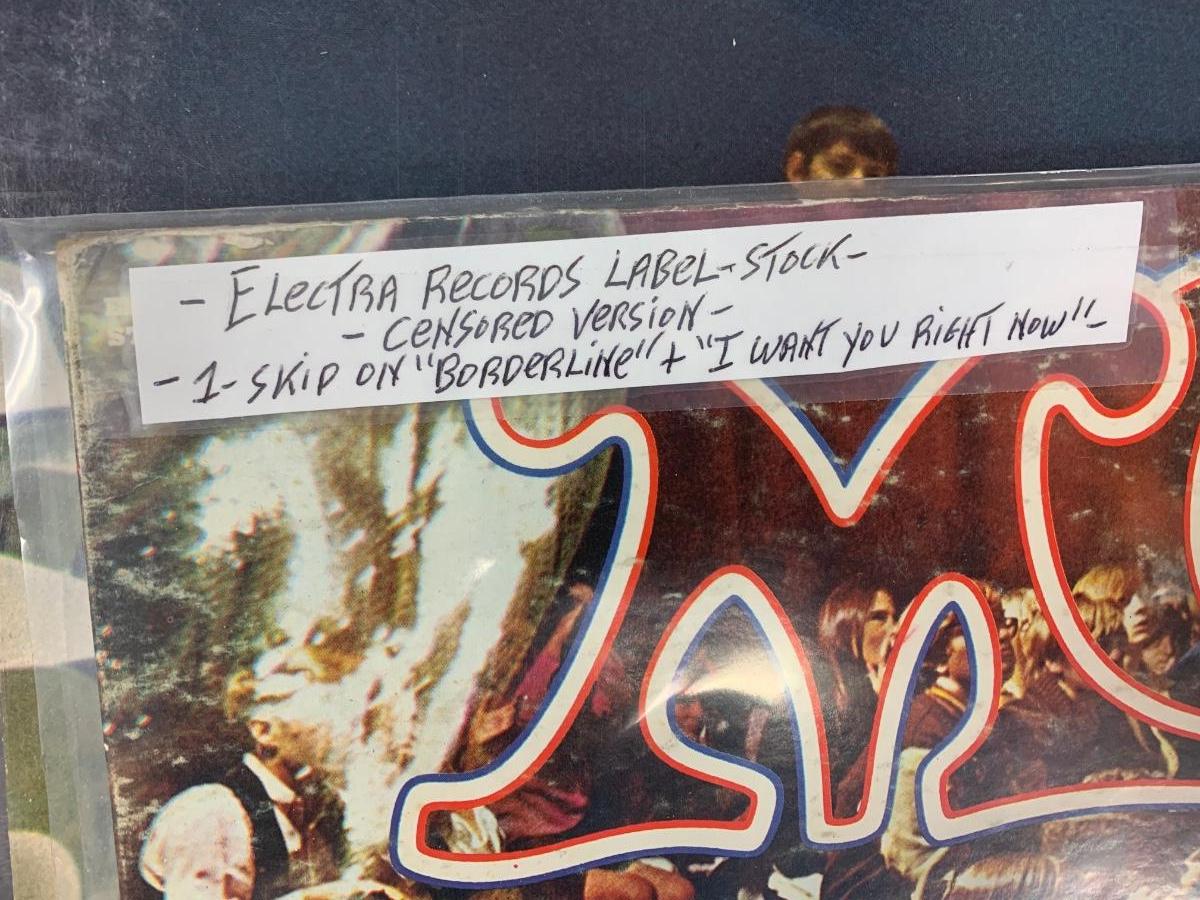 - ELECTRA RECORDS LABEL - STOCK -
- CENSORED VERSION -
- 1 - SKIP ON "BORDERLINE" + "I WANT YOU RIGHT NOW" -
M